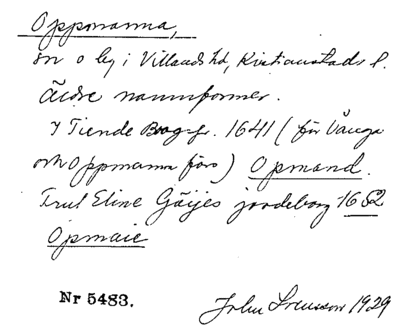 Oppmanna,
sn o by i Villands hd, Kristianstads l.
Äldre namnformer.
I Tiende Bog fr. 1641 (för Vånga
och Oppmanna förs) Opmand.
Fruk Eline Göijes jordebog 1652
Opmaie
Nr 5483.
John Svensson 1929